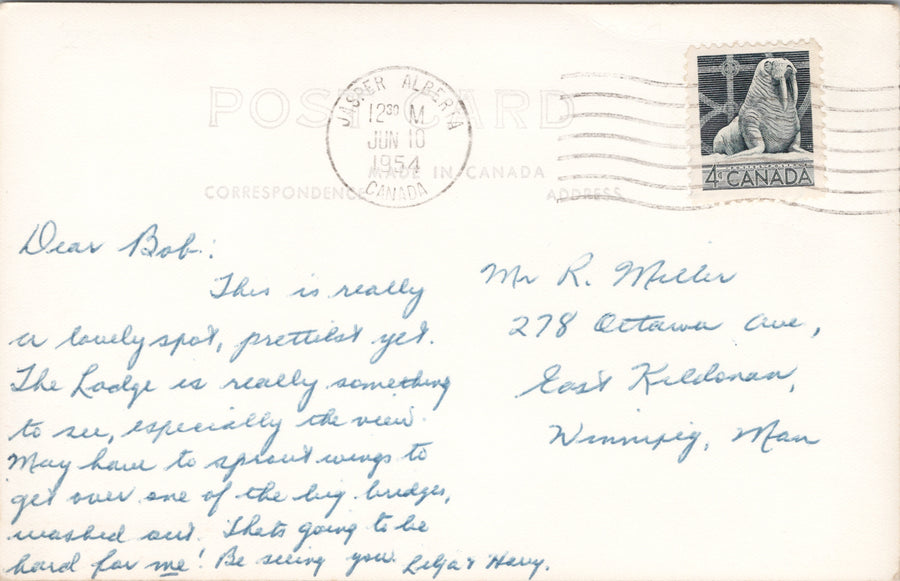 POST CARD
JASPER ALBERTA
12 30 M
JUN 10
1954
CANADA
MADE IN CANADA
4¢ CANADA
CORRESPONDENCE
ADDRESS
Dear Bob:
This is really
a lovely spot, prettiest yet.
The Lodge is really something
to see, especially the view.
May have to sprout wings to
get over one of the big bridges,
washed out. Thats going to be
hard for me! Be seeing you. & Harry.
Mr R. Miller
278 Ottawa Ave,
East Kildonan,
Winnipeg, Man